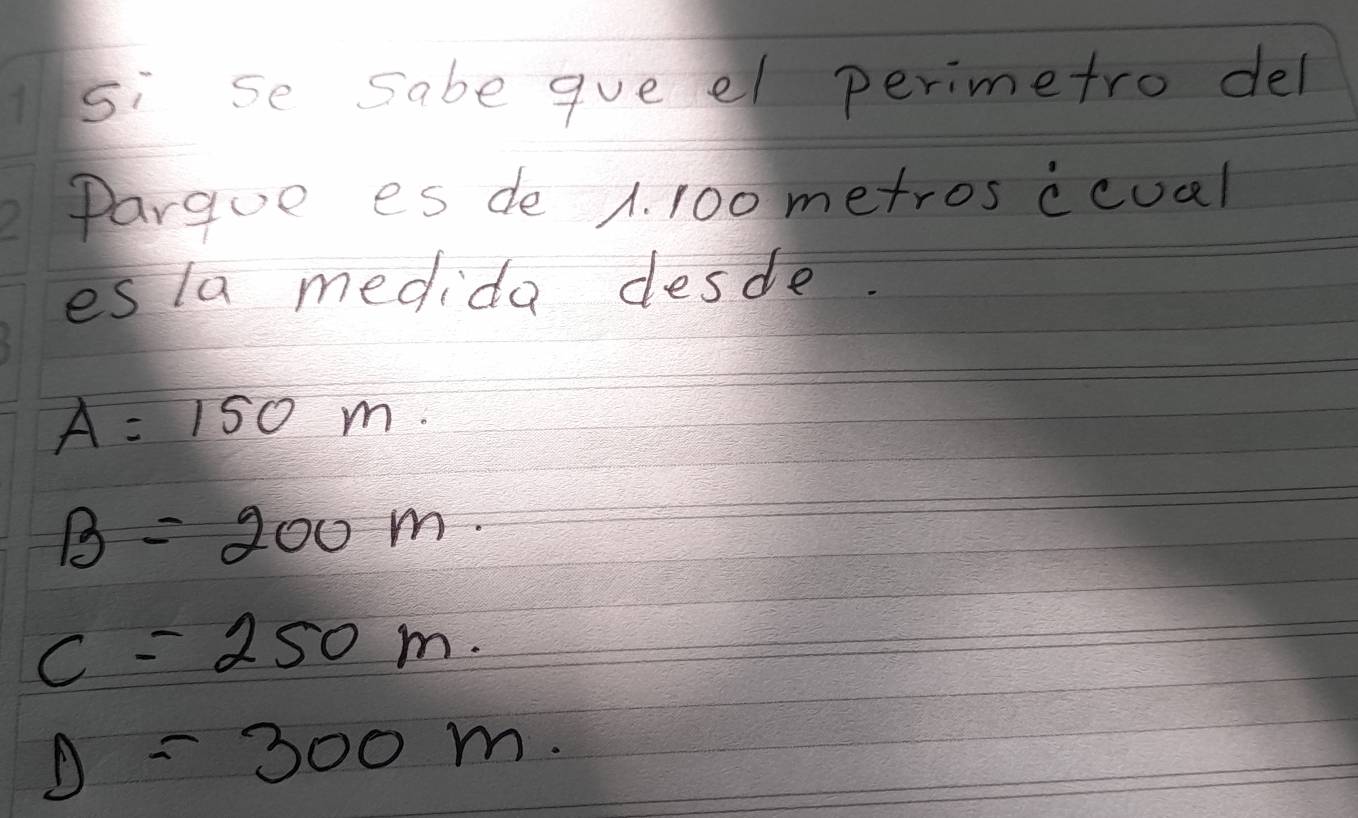 si se sabe que el perimetro del
Parque es de 1.100 metros ¿cual
es la medida desde.
A = 150 m.
B = 200 m.
C = 250 m.
D = 300 m.